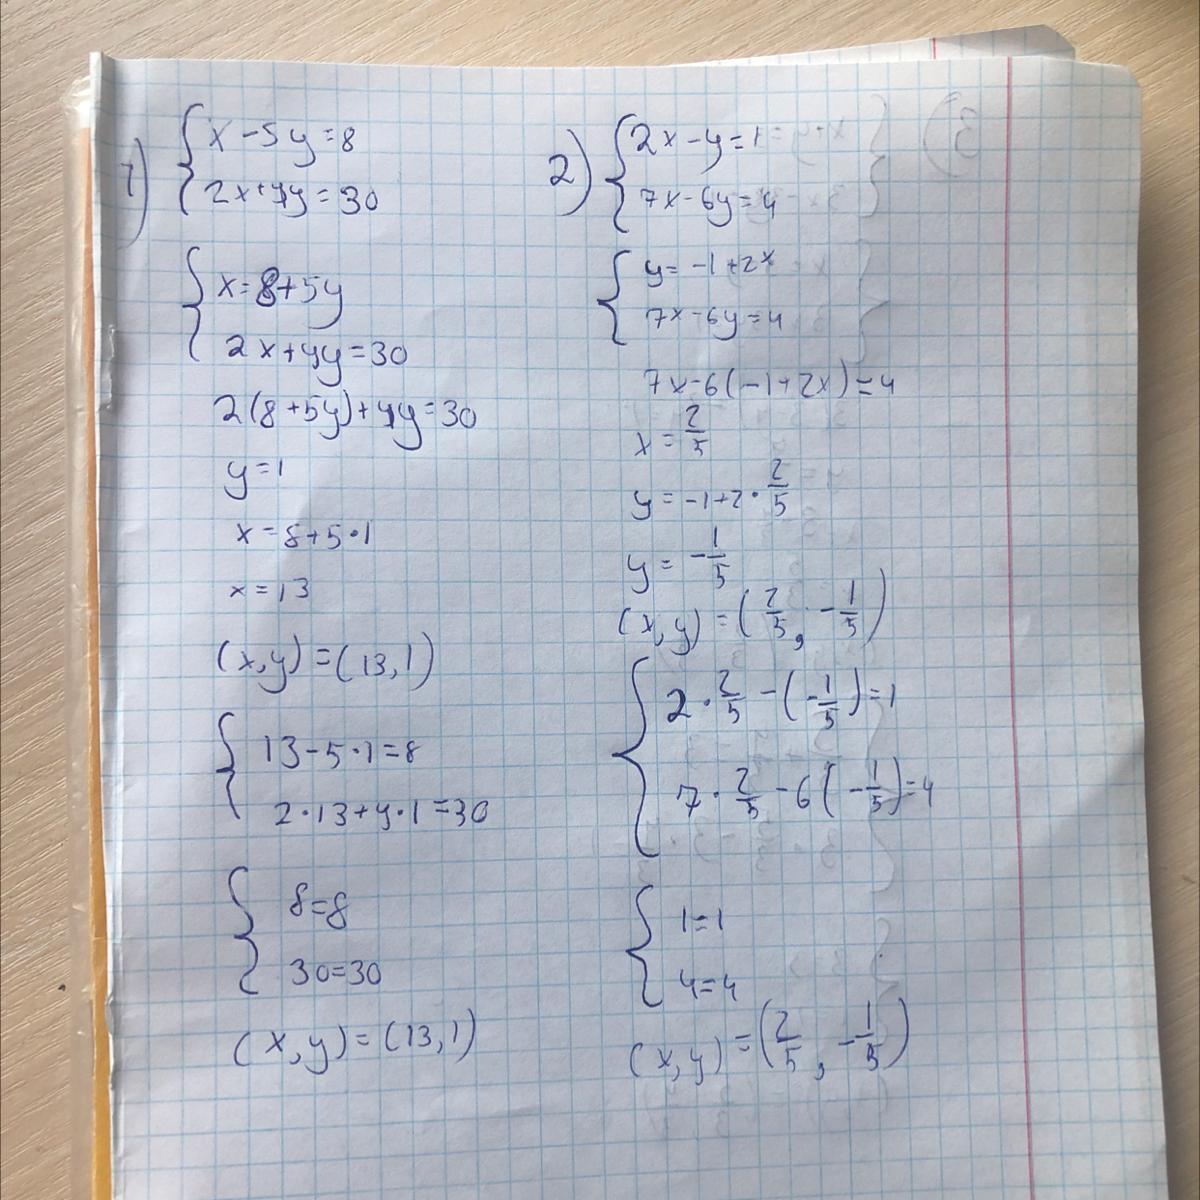 1) { x - 5y = 8
2x + 4y = 30
{ x = 8 + 5y
2x + 4y = 30
2(8 + 5y) + 4y = 30
y = 1
x = 8 + 5 · 1
x = 13
(x, y) = (13, 1)
{ 13 - 5 · 1 = 8
2 · 13 + 4 · 1 = 30
{ 8 = 8
30 = 30
(x, y) = (13, 1)
2) { 2x - y = 1
7x - 6y = 4
{ y = -1 + 2x
7x - 6y = 4
7x - 6(-1 + 2x) = 4
x = 2/5
y = -1 + 2 · 2/5
y = -1/5
(x, y) = (2/5, -1/5)
{ 2 · 2/5 - (-1/5) = 1
7 · 2/5 - 6(-1/5) = 4
{ 1 = 1
4 = 4
(x, y) = (2/5, -1/5)